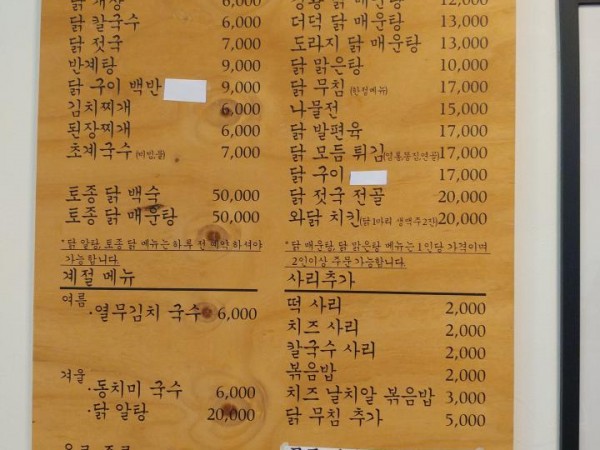 닭 개장 6,000
닭 칼국수 6,000
닭 젓국 7,000
반계탕 9,000
닭 구이 백반 9,000
김치찌개 6,000
된장찌개 6,000
초계국수(비빔,물) 7,000
토종 닭 백숙 50,000
토종 닭 매운탕 50,000
*닭 알탕, 토종 닭 메뉴는 하루 전 예약 하셔야
가능합니다.
계절 메뉴
여름
·열무김치 국수 6,000
겨울
·동치미 국수 6,000
·닭 알탕 20,000
닭 매운탕 12,000
더덕 닭 매운탕 13,000
도라지 닭 매운탕 13,000
닭 맑은탕 10,000
닭 무침(한정메뉴) 17,000
나물전 15,000
닭 발편육 17,000
닭 모듬 튀김 17,000
닭 구이 17,000
닭 젓국 전골 20,000
와닭 치킨(닭1마리 생맥주2잔) 20,000
*닭 매운탕, 닭 맑은탕 메뉴는 1인당 가격이며
2인이상 주문 가능합니다.
사리추가
떡 사리 2,000
치즈 사리 2,000
칼국수 사리 2,000
볶음밥 2,000
치즈 날치알 볶음밥 3,000
닭 무침 추가 5,000